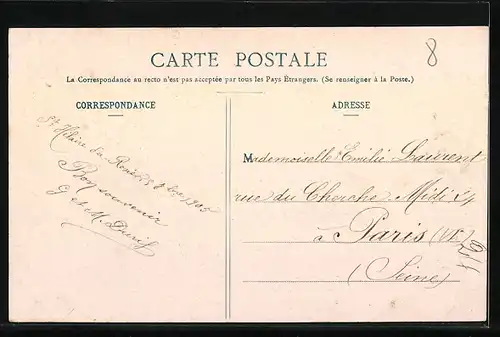 8
CARTE POSTALE
La Correspondance au recto n'est pas acceptée par tous les Pays Étrangers. (Se renseigner à la Poste.)
CORRESPONDANCE
ADRESSE
St Hilaire du 1905
Bon souvenir
G et M.
Mademoiselle Emilie Laurent
rue du Cherche-Midi 14
à Paris (VIe)
(Seine)